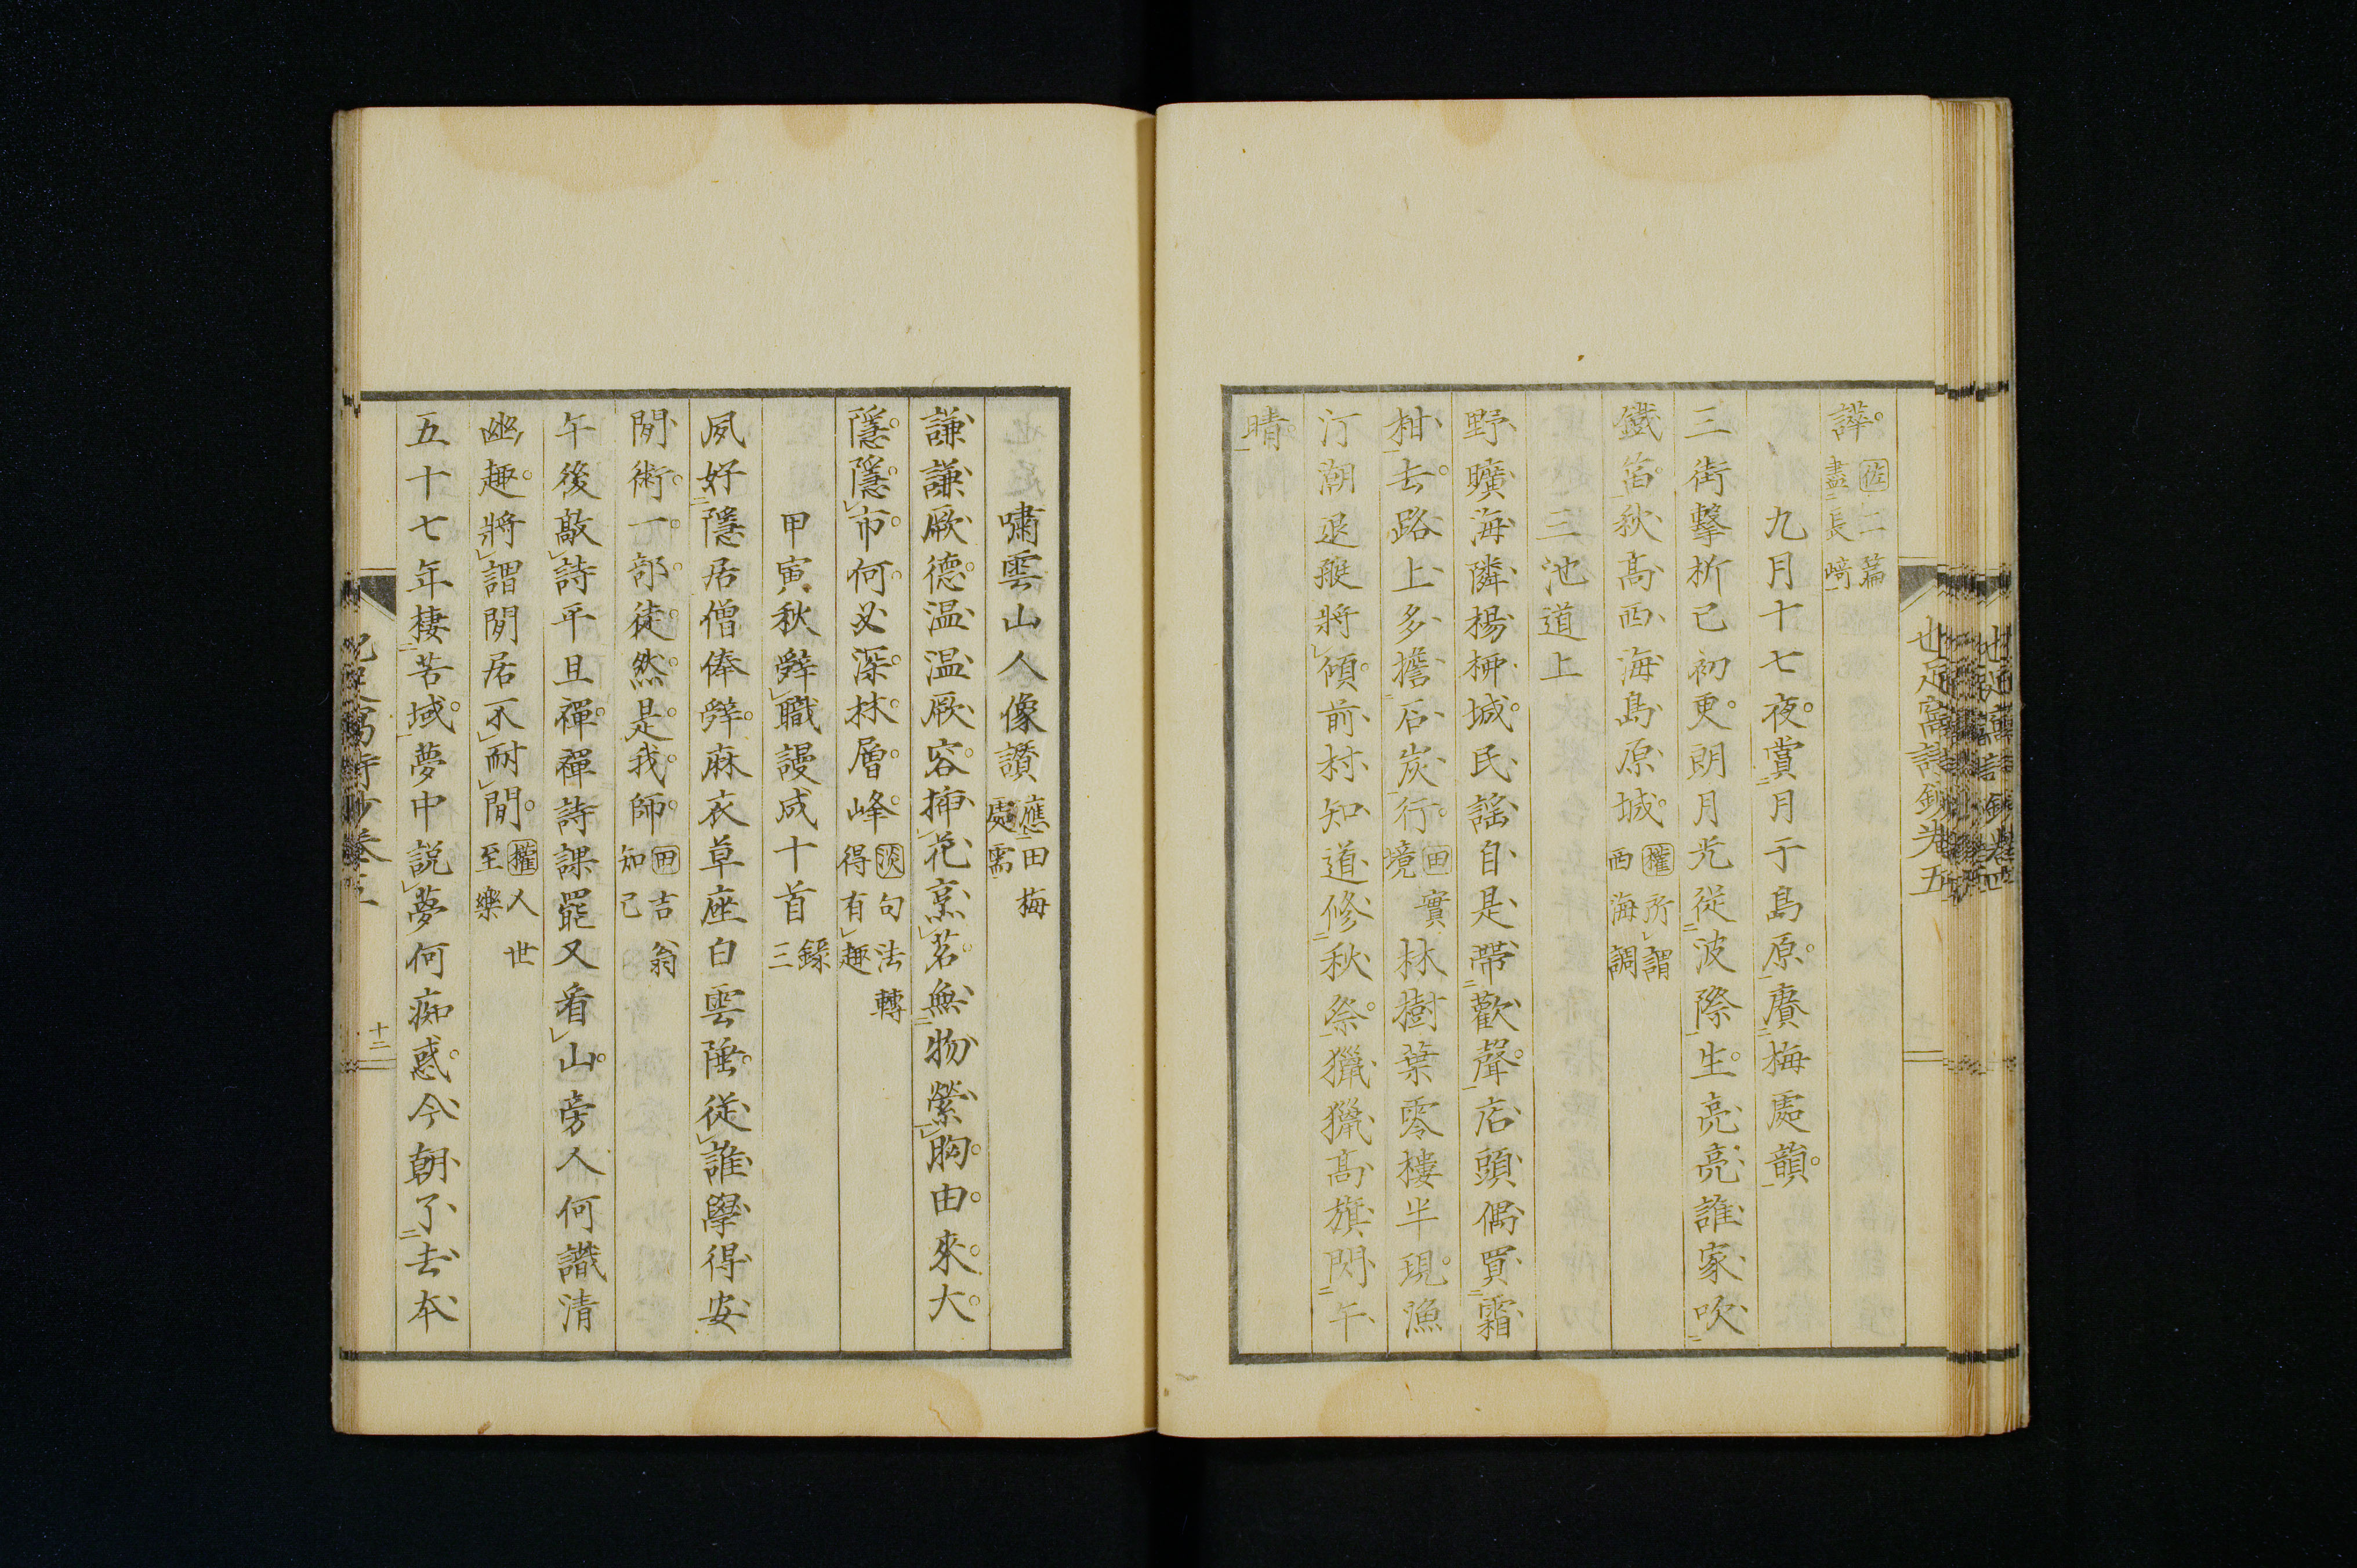 譁佐二篇盡長崎
九月十七夜賞月于島原賡梅處韻
三街擊柝已初更朗月光從波際生亮亮誰家吹
鐵笛秋高西海島原城權所謂西海調
三池道上
野曠海隣楊柳城民謠自是帶歡聲店頭偶買霜
柑去路上多擔石炭行田實境林樹葉零樓半現漁
汀潮退艇將傾前村知道修秋祭獵獵高旗閃午
晴
也足窩詩鈔卷五
嘯雲山人像讚應田梅處需
謙謙厥德温温厥容揷花烹茗無物縈胸由來大
隱隱市何必深林層峰淡句法轉得有趣
甲寅秋辭職謾成十首錄三
夙好隱居僧俸辭麻衣草座白雲陲從誰學得安
閒術一部徒然是我師田吉翁知己
午後敲詩平旦禪禪詩課罷又看山旁人何識清
幽趣將謂閒居不耐閒權人世至樂
五十七年棲苦域夢中説夢何痴惑今朝了去本
十二